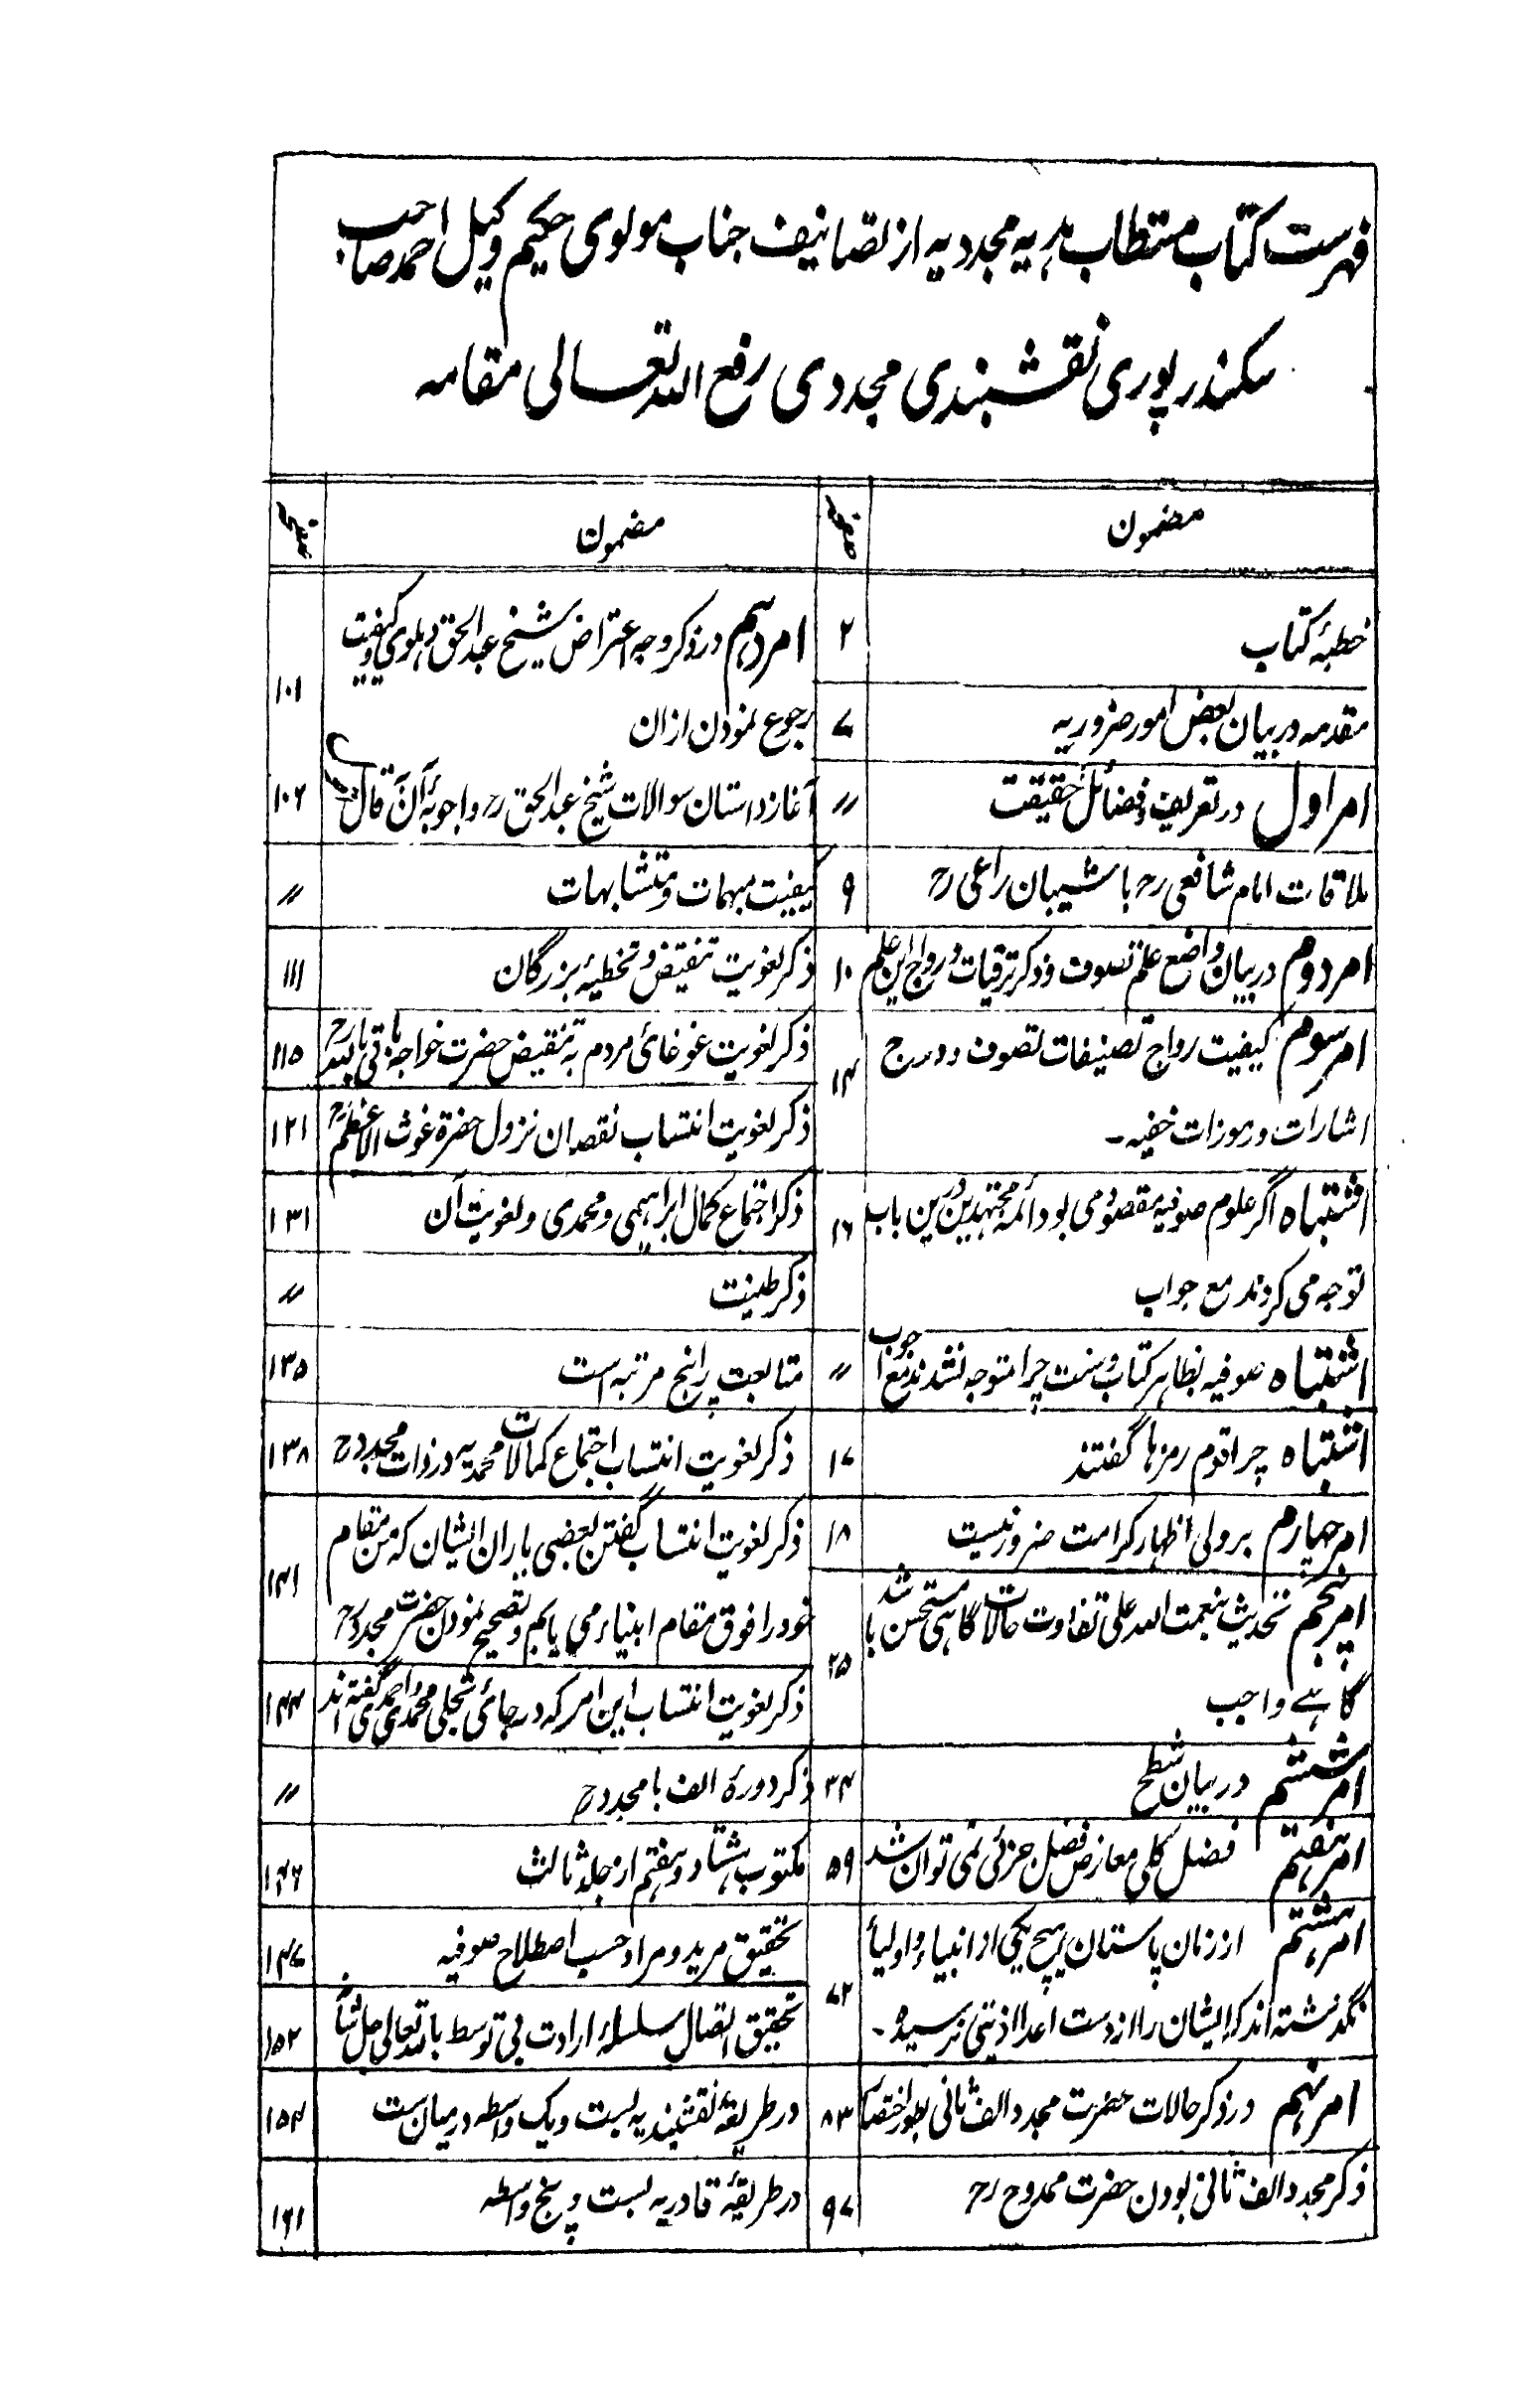 فهرست کتاب مستطاب هدیه مجددیه از تصانیف جناب مولوی حکیم وکیل احمد صاحب
سکندرپوری نقشبندی مجددی رفع الله تعالی مقامه
مضمون صفحہ
خطبۂ کتاب ۲
مقدمه در بیان بعض امور ضروریه ۷
امر اول در تعریف و فضائل حقیقت 〃
ملاقات امام شافعی رح با شیبان راعی رح ۹
امر دوم در بیان واضع علم تصوف و ذکر ترقیات و رواج این علم ۱۰
امر سوم کیفیت رواج تصنیفات تصوف و درج ۱۴
اشارات و رموزات خفیه۔
اشتباه اگر علوم صوفیه مقصود می بود ائمه مجتهدین درین باب ۱۶
توجه می کردند مع جواب
اشتباه صوفیه بظاهر کتاب و سنت چرا متوجه نشدند مع جواب 〃
اشتباه چرا قوم رمزها گفتند ۱۷
امر چهارم بر ولی اظهار کرامت ضرور نیست ۱۸
امر پنجم تحدیث بنعمت الله علی تفاوت حالات گاهی مستحسن باشد ۲۵
گاہے واجب
امر ششم در بیان شطح ۳۴
امر هفتم فضل کلی معارض فضل جزئی نمی توان شد ۵۹
امر هشتم از زمان پاستان هیچ یکی از انبیاء و اولیاء ۷۲
نگذشته اند که ایشان را از دست اعدا اذیتی نرسیده۔
امر نهم در ذکر حالات حضرت مجدد الف ثانی بطور اختصار ۸۳
ذکر مجدد الف ثانی بودن حضرت ممدوح رح ۹۷
مضمون صفحہ
امر دهم در ذکر وجه اعتراض شیخ عبد الحق دهلوی و کیفیت ۱۰۱
رجوع نمودن ازان
آغاز داستان سوالات شیخ عبد الحق رح و اجوبۂ آن قال ۱۰۶
کیفیت مبهمات و متشابهات 〃
ذکر لغویت تنقیص و تخطیۂ بزرگان ۱۱۱
ذکر لغویت غوغائی مردم به تنقیص حضرت خواجه باقی بالله رح ۱۱۵
ذکر لغویت انتساب نقصان نزول حضرة غوث الاعظم رح ۱۲۱
ذکر اجتماع کمال ابراهیمی و محمدی و لغویت آن ۱۳۱
ذکر طینت 〃
متابعت را پنج مرتبه است ۱۳۵
ذکر لغویت انتساب اجتماع کمالات محمدیه در ذات مجدد رح ۱۳۸
ذکر لغویت انتساب گفتن بعضی یاران ایشان که من مقام ۱۴۱
خود را فوق مقام انبیاء می یابم و تصحیح نمودن حضرت مجدد رح
ذکر لغویت انتساب این امر که در جائی تجلی محمدی و احمدی گفته اند ۱۴۴
ذکر دورۂ الف با مجدد رح 〃
مکتوب هشتاد و هفتم از جلد ثالث ۱۴۶
تحقیق مرید و مراد حسب اصطلاح صوفیه ۱۴۷
تحقیق اتصال سلسلۂ ارادت بی توسط بالله تعالی جل شانه ۱۵۲
در طریقۂ نقشبندیه بست و یک واسطه درمیان ست ۱۵۴
در طریقۂ قادریه بست و پنج واسطه ۱۶۱